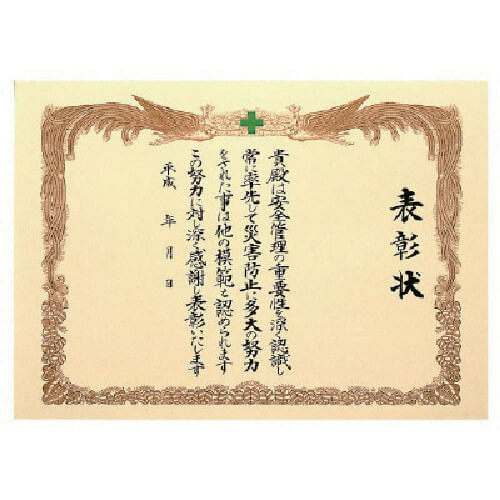 表彰状
貴殿は安全管理の重要性を深く認識し
常に率先して災害防止に多大の努力
をされた事は他の模範と認められます
この努力に対し深く感謝し表彰いたします
平成　年　月　日